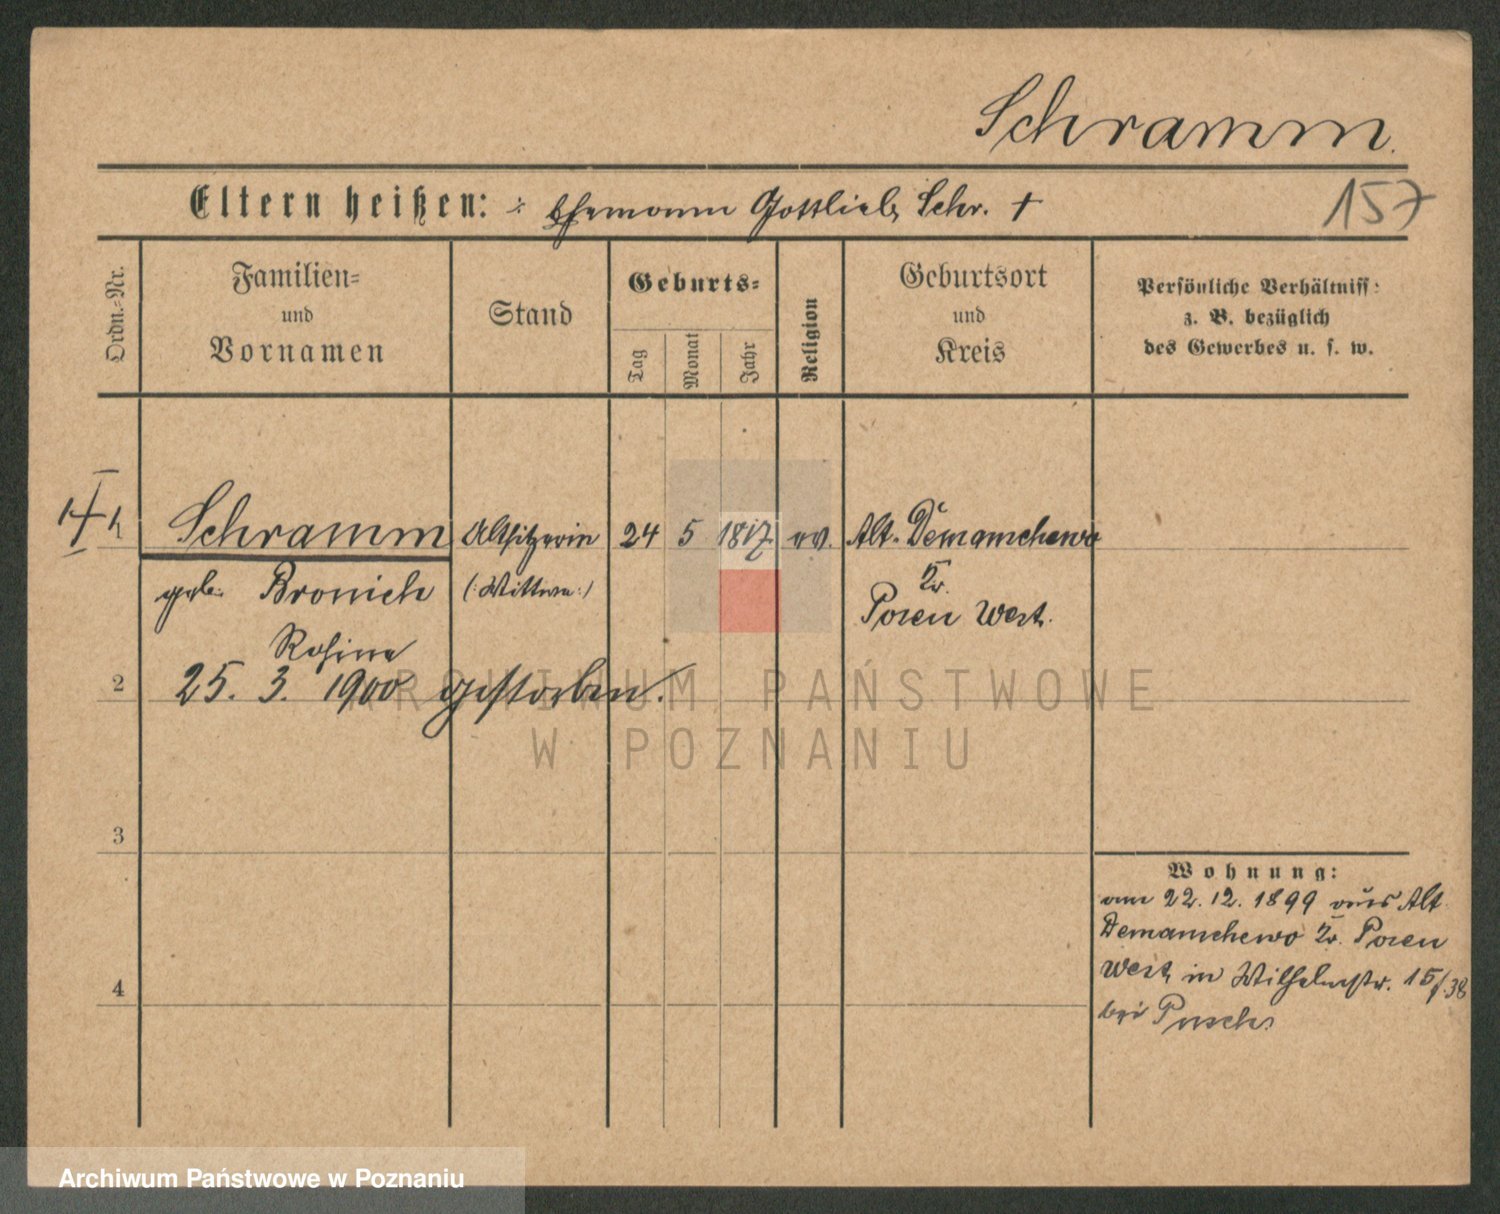 Schramm.
Eltern heißen: Ehemann Gottlieb Schr. †
157
Ordn.-Nr.
Familien-
und
Vornamen
Stand
Geburts-
Tag
Monat
Jahr
Religion
Geburtsort
und
Kreis
Persönliche Verhältniss:
z. B. bezüglich
des Gewerbes u. s. w.
Schramm Altsitzerin 24 5 1817 ev. Alt-Demanchewo
geb. Bronich (:Wittwe:) Kr.
Posen West.
Rosine
2 25. 3. 1900 gestorben.
ARCHIWUM PAŃSTWOWE
W POZNANIU
3
Wohnung:
am 22. 12. 1899 aus Alt
Demanchewo Kr. Posen
West in Wilhelmstr. 15/38
4
bei Pusch
Archiwum Państwowe w Poznaniu